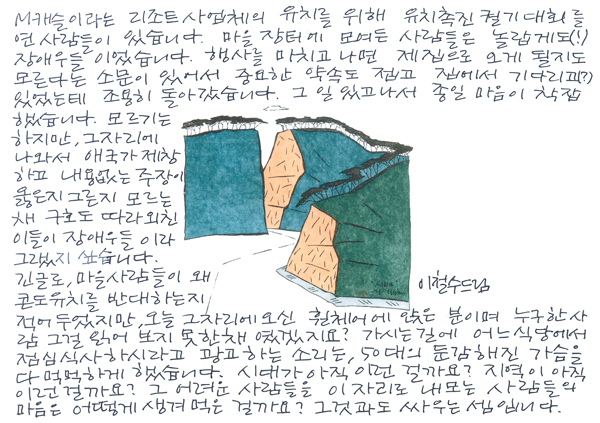 M캐슬이라는 리조트사업체의 유치를 위해 유치촉진 궐기대회를
연 사람들이 있습니다. 마을 장터에 모여든 사람들은 놀랍게도(!)
장애우들이었습니다. 행사를 마치고나면 제집으로 오게 될지도
모른다는 소문이 있어서 중요한 약속도 접고 집에서 기다리고(?)
있었는데 조용히 돌아갔습니다. 그 일 있고나서 종일 마음이 착잡
했습니다. 모르기는
하지만, 그자리에
나와서 애국가제창
하고 내용없는 주장이
옳은지 그른지 모르는
채 구호도 따라외친
이들이 장애우들 이라
그랬지 싶습니다.
긴글로, 마을사람들이 왜
콘도유치를 반대하는지
적어 두었지만, 오늘 그자리에 오신 휠체어에 앉은 분이며 누구한사
람 그걸 읽어 보지 못한채 였겠지요? 가시는길에 어느식당에서
점심식사하시라고 광고하는 소리는, 50대의 둔감해진 가슴을
다 먹먹하게 했습니다. 시대가 아직 이런 걸까요? 지역이 아직
이런걸까요? 그 어려운 사람들을 이 자리로 내모는 사람들의
마음은 어떻게 생겨 먹은 걸까요? 그것과도 싸우는 셈입니다.
이철수드림